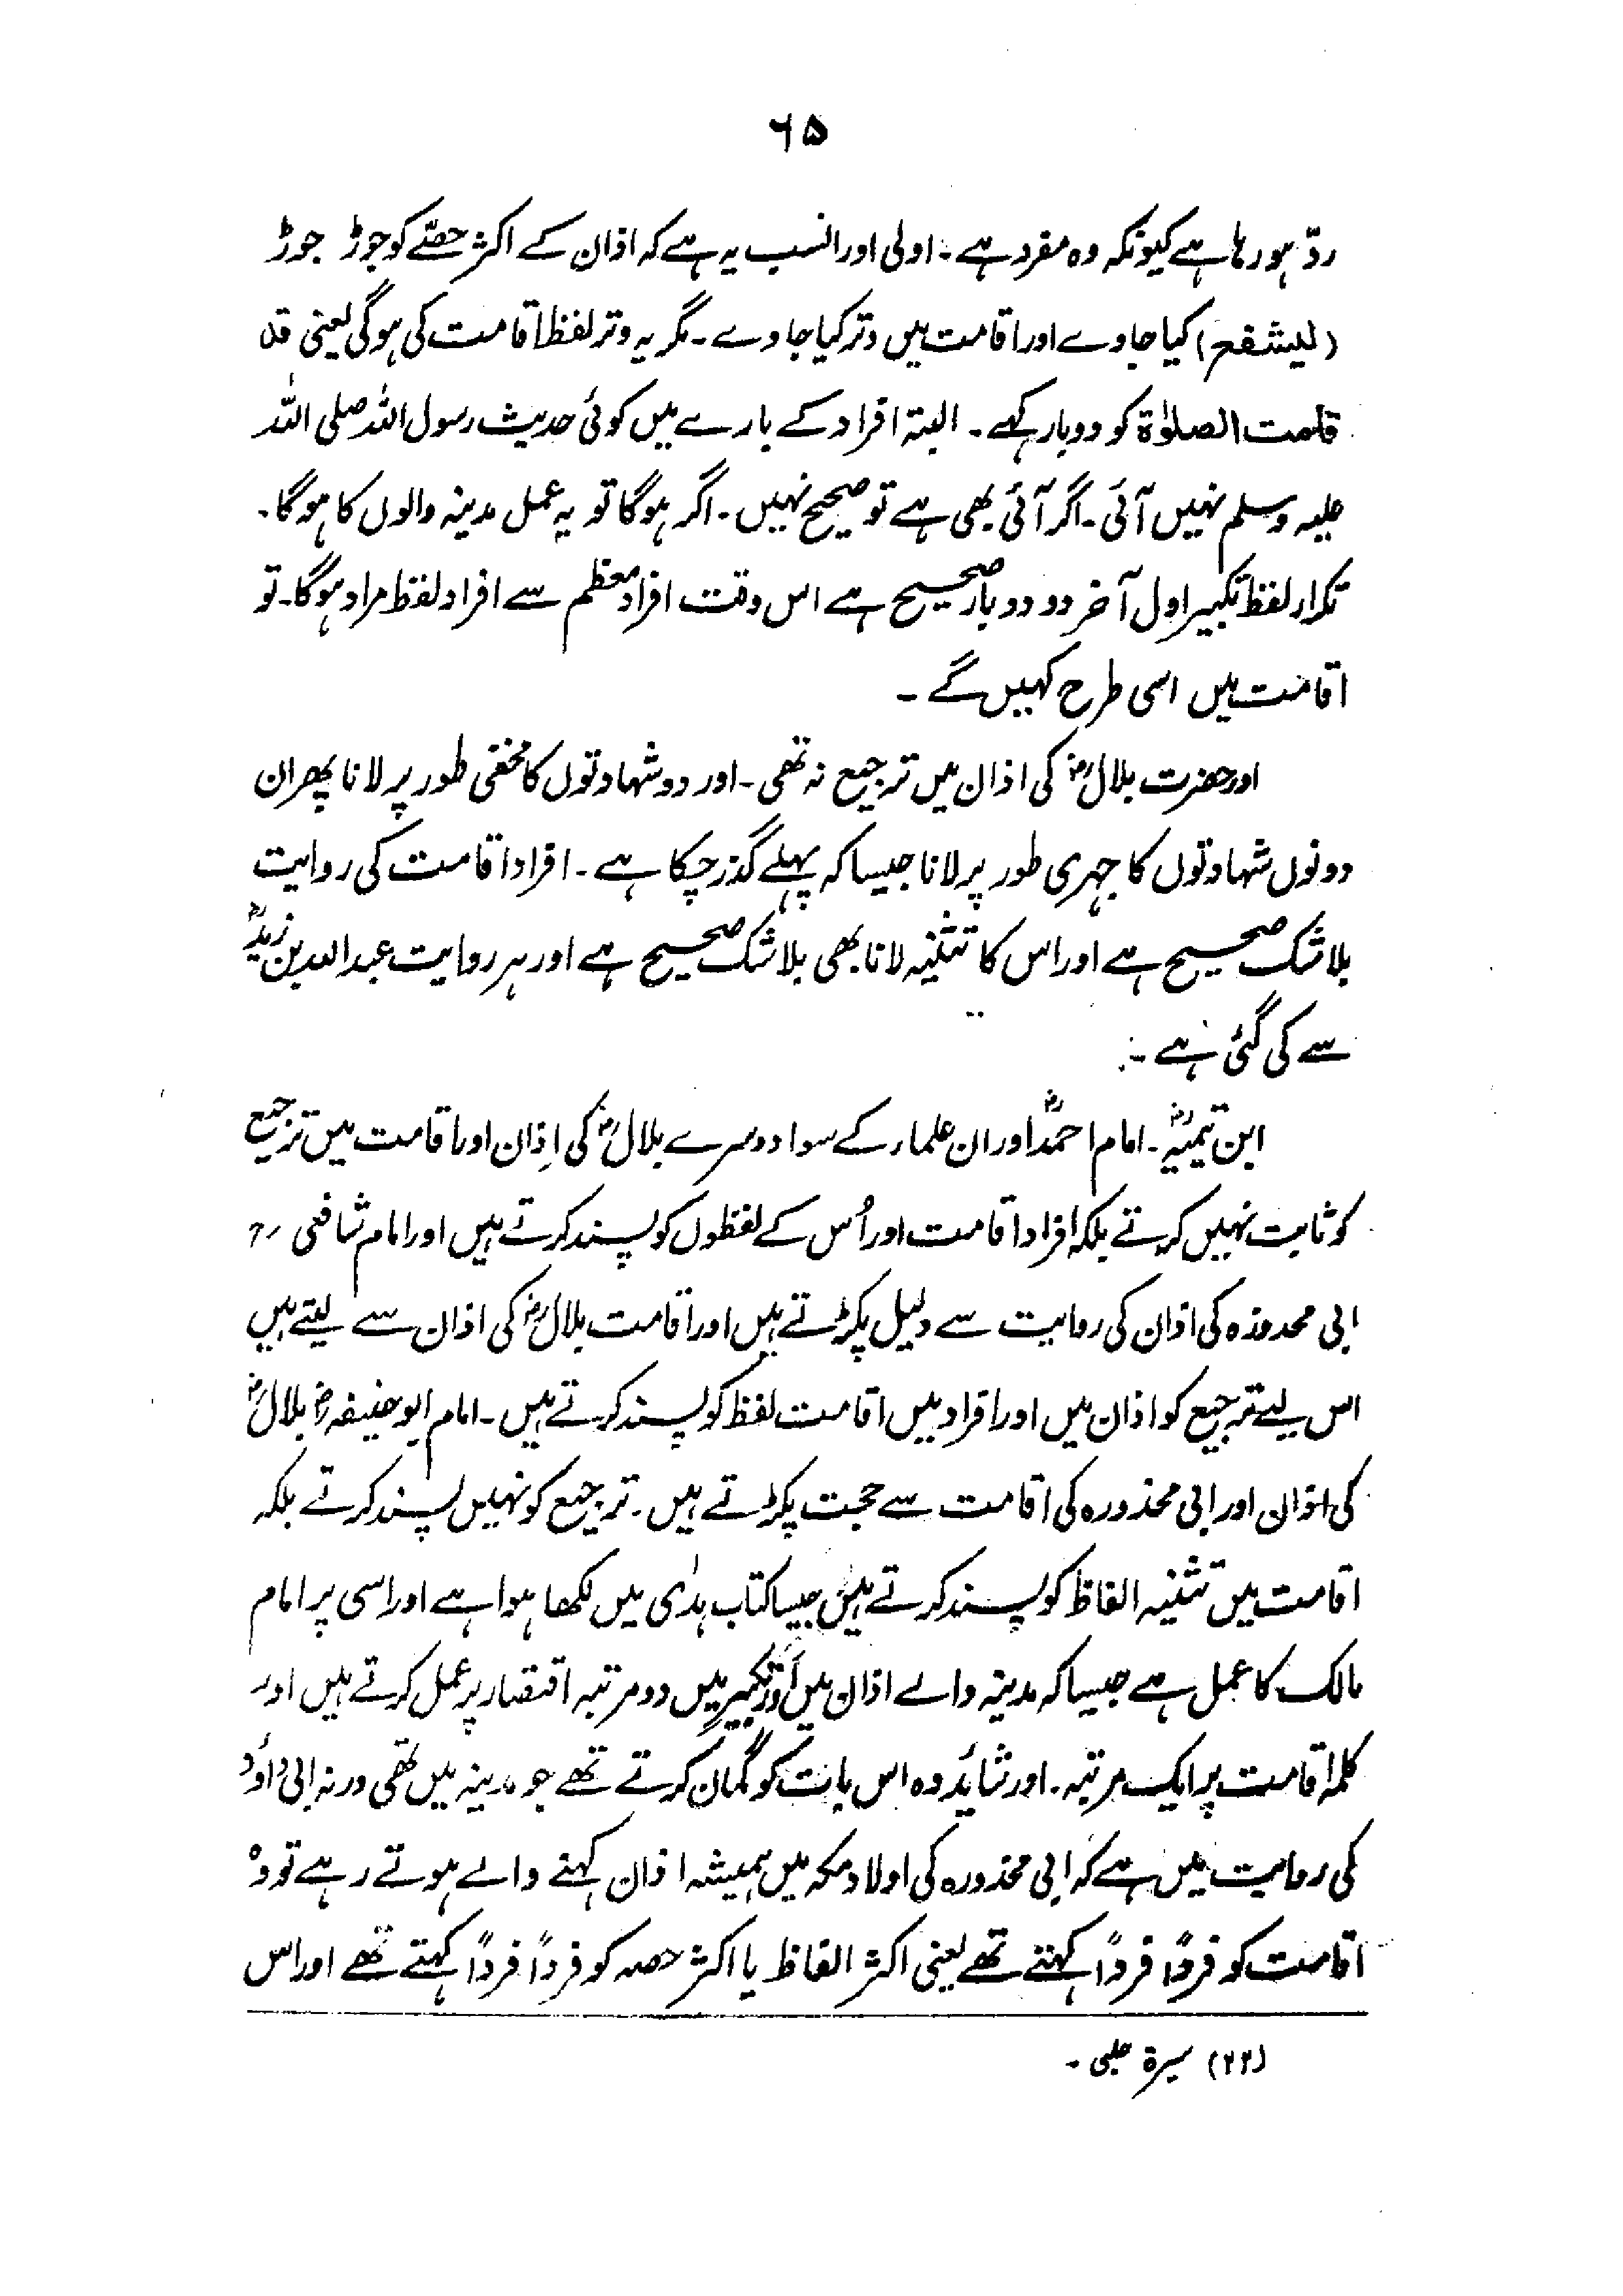 ۶۵
ردّ ہو رہا ہے کیونکہ وہ مفرد ہے۔ اولی اور انسب یہ ہے کہ اذان کے اکثر حصّے کو جوڑ جوڑ
(لیشفع) کیا جاوے اور اقامت میں وتر کیا جاوے۔ مگر یہ وتر لفظ اقامت کی ہوگی یعنی قد
قامت الصلوٰۃ کو دوبار کہے۔ البتہ افراد کے بارے میں کوئی حدیث رسول اللہ صلی اللہ
علیہ وسلم نہیں آئی۔ اگر آئی بھی ہے تو صحیح نہیں۔ اگر ہوگا تو یہ عمل مدینہ والوں کا ہوگا۔
تکرار لفظ تکبیر اول آخر دو دو بار صحیح ہے اس وقت افراد معظم سے افراد لفظ مراد ہوگا۔ تو
اقامت میں اسی طرح کہیں گے۔
اور حضرت بلالؓ کی اذان میں ترجیع نہ تھی۔ اور دو شہادتوں کا مخفی طور پر لانا پھر ان
دونوں شہادتوں کا جہری طور پر لانا جیسا کہ پہلے گذر چکا ہے۔ افراد اقامت کی روایت
بلا شک صحیح ہے اور اس کا تثنیہ لانا بھی بلا شک صحیح ہے اور ہر روایت عبداللہ بن زیدؓ
سے کی گئی ہے۔
ابن تیمیہؒ۔ امام احمدؒ اور ان علماء کے سوا دوسرے بلالؓ کی اِذان اور اقامت میں ترجیع
کو ثابت نہیں کرتے بلکہ افراد اقامت اور اُس کے لفظوں کو پسند کرتے ہیں اور امام شافعیؒ
ابی محدوزہ کی اذان کی روایت سے دلیل پکڑتے ہیں اور اقامت بلالؓ کی اذان سے لیتے ہیں
اس لیے ترجیع کو اذان میں اور افراد میں اقامت لفظ کو پسند کرتے ہیں۔ امام ابو حنیفہؓ بلالؓ
کی اذان اور ابی محذورہ کی اقامت سے حجت پکڑتے ہیں۔ ترجیع کو نہیں پسند کرتے بلکہ
اقامت میں تثنیہ الفاظ کو پسند کرتے ہیں جیسا کتاب ہدٰی میں لکھا ہوا ہے اور اسی پر امام
مالک کا عمل ہے جیسا کہ مدینہ والے اذان میں اور تکبیر میں دو مرتبہ اقتصار پر عمل کرتے ہیں اور
کلمہ اقامت پر ایک مرتبہ۔ اور شائد وہ اس بات کو گمان کرتے تھے جو مدینہ میں تھی ورنہ ابی داؤد
کی روایت میں ہے کہ ابی محذورہ کی اولاد مکہ میں ہمیشہ اذان کہنے والے ہوتے رہے تو وہ
اقامت کو فرداً فرداً کہتے تھے یعنی اکثر الفاظ یا اکثر حصہ کو فرداً فرداً کہتے تھے اور اس
(۲۲) سیرۃ حلبی۔